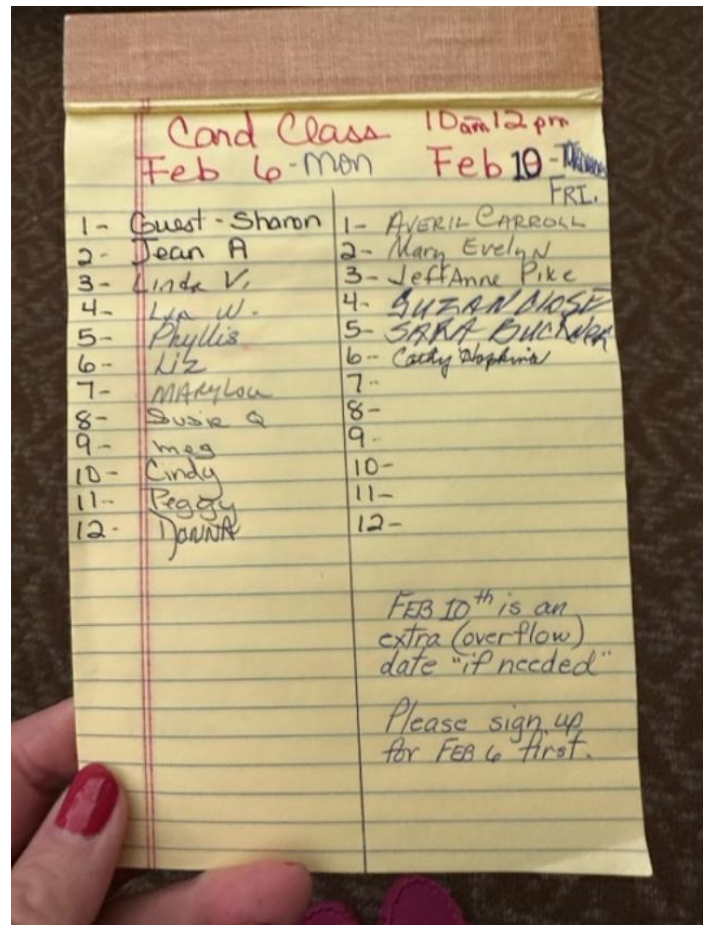 Card Class 10am 12 pm
Feb 6 - Mon Feb 10 -
FRI.
1- Guest - Sharon
2- Jean A
3- Linda V.
4- Lyn W.
5- Phyllis
6- Liz
7- MARYLOU
8- Susie Q
9- meg
10- Cindy
11- Peggy
12- DONNA
1- AVERIL CARROLL
2- Mary Evelyn
3- JeffAnne Pike
4- SUZAN CLOSE
5- SARA BUCKNER
6- Cathy Hopkins
7-
8-
9-
10-
11-
12-
FEB 10th is an
extra (overflow)
date "if needed"
Please sign up
for FEB 6 first.